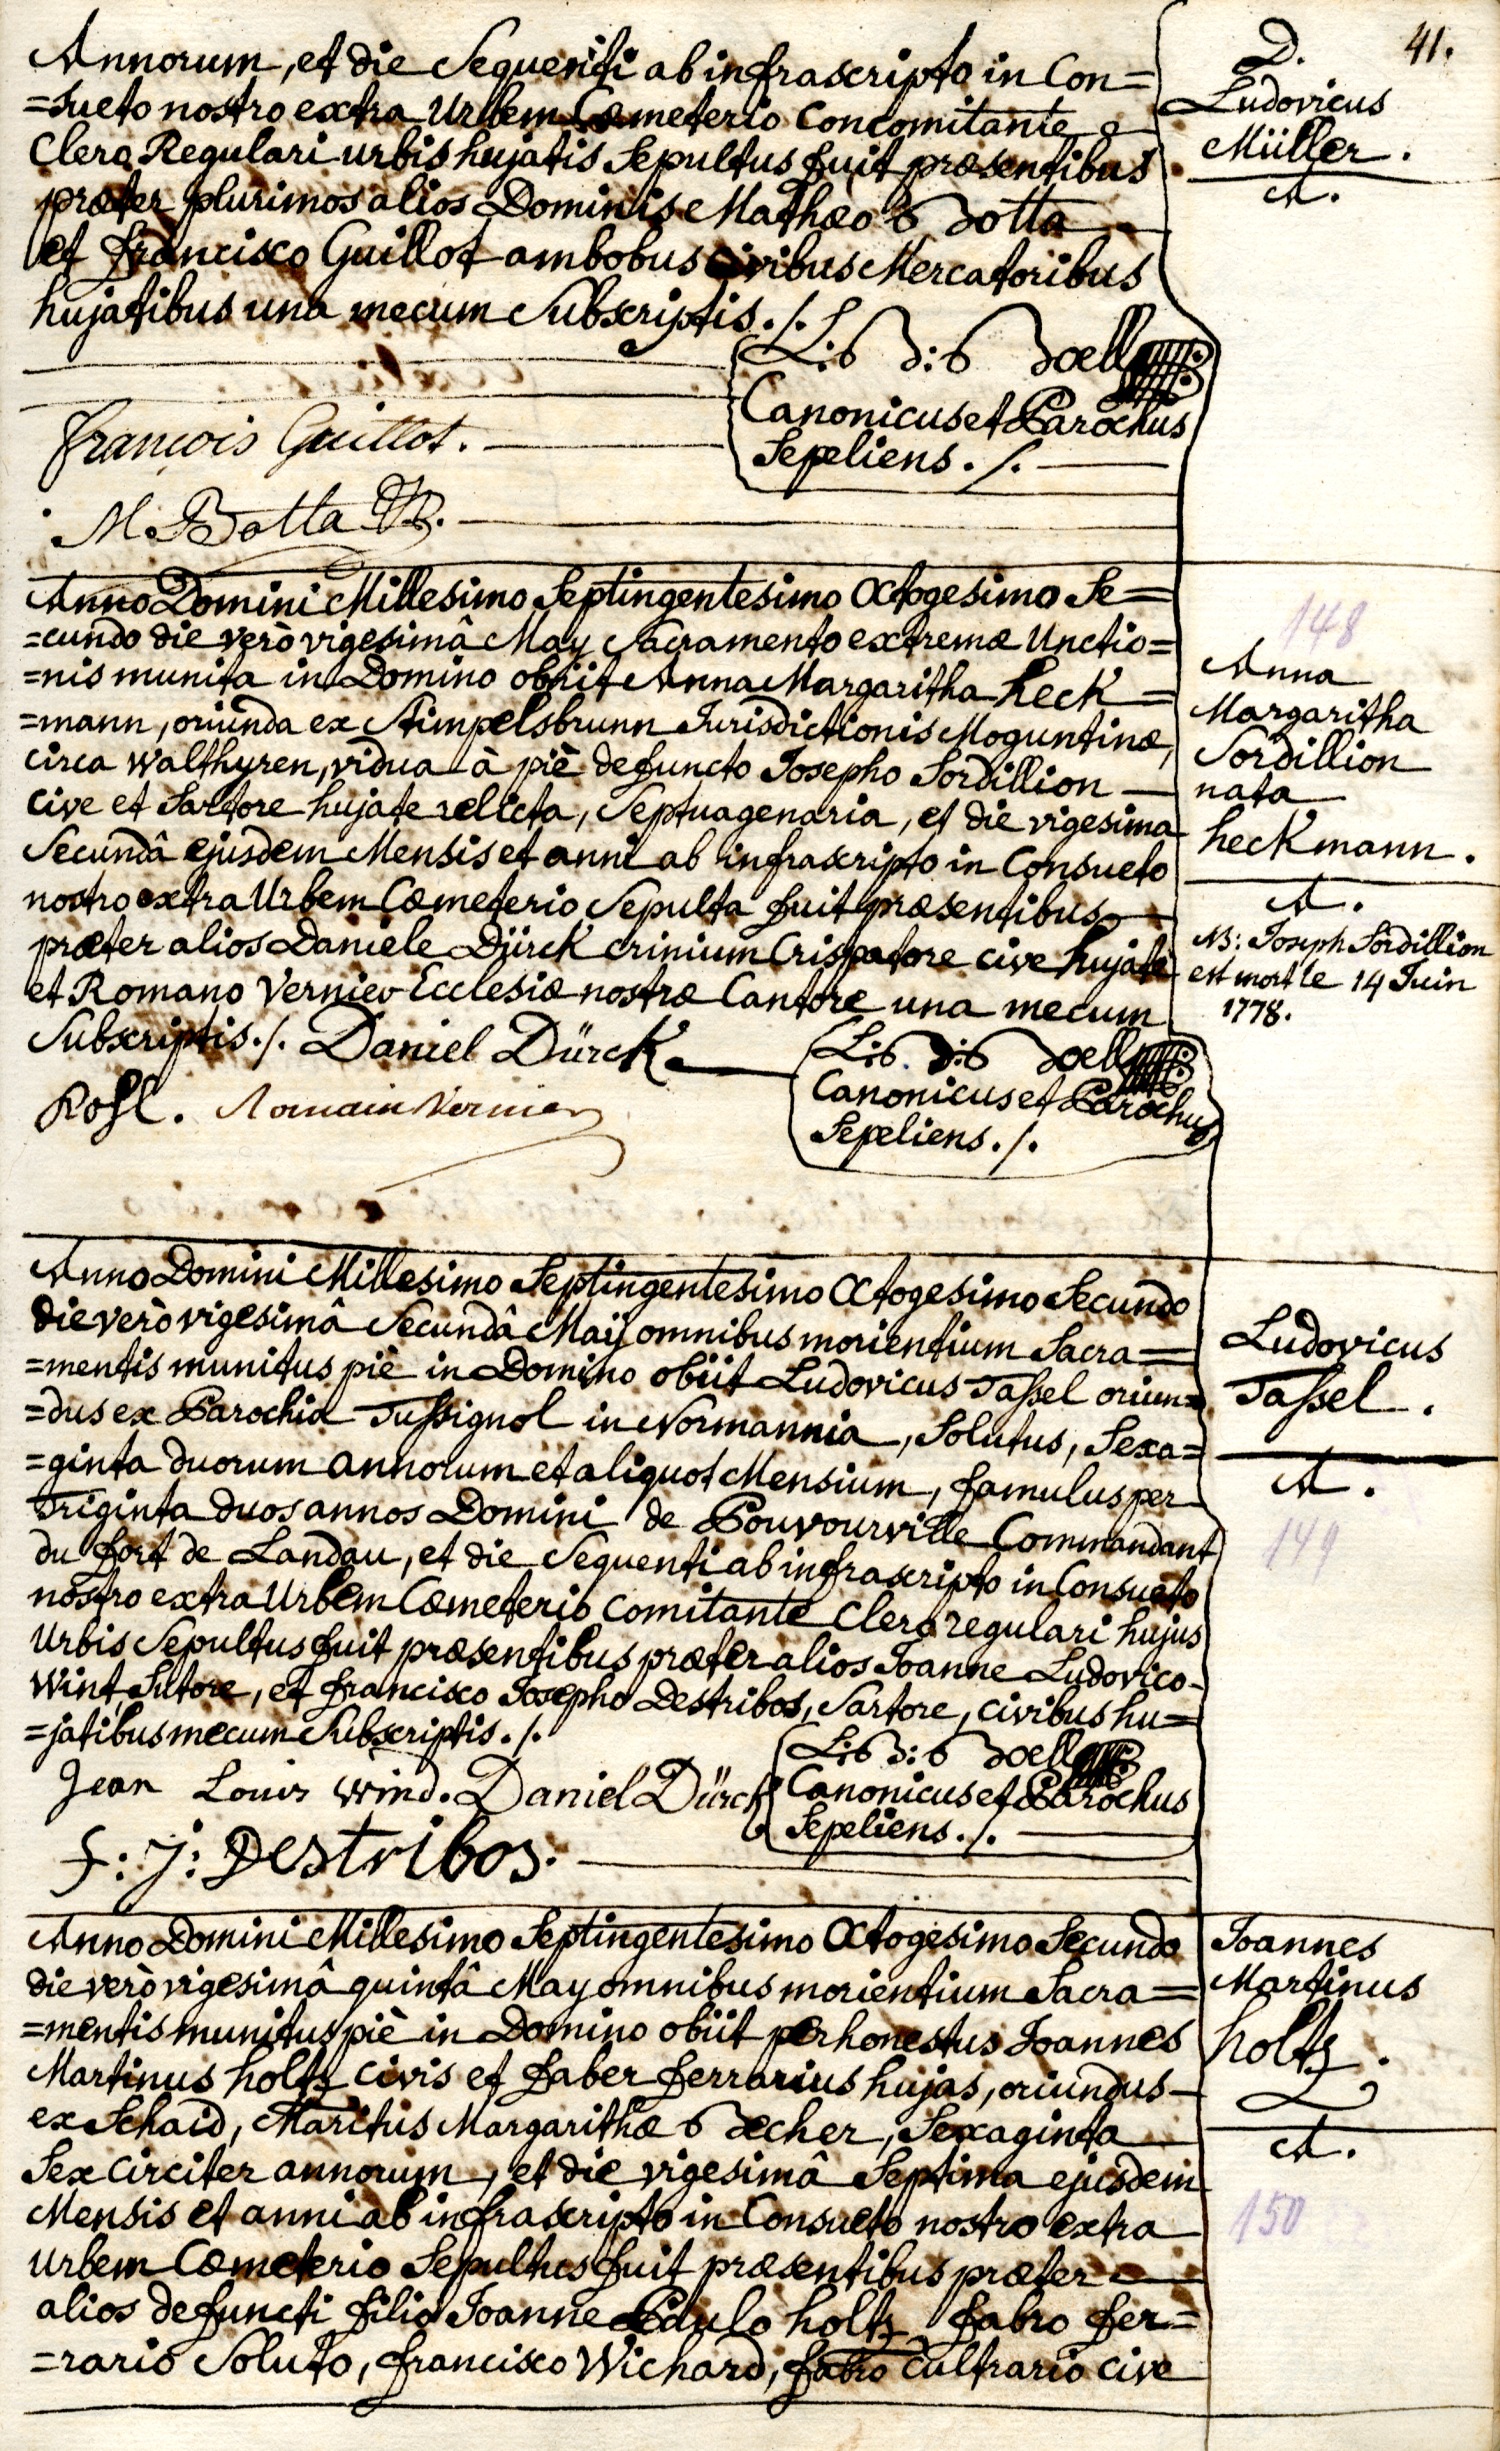 41.
Annorum, et die Sequenti ab infrascripto in Con=
=sueto nostro extra Urbem Cœmeterio Concomitante
Clero Regulari urbis hujatis Sepultus fuit præsentibus
præter plurimos alios Dominis Mathæo Botta
et francisco Guillot ambobus Civibus Mercatoribus
hujatibus una mecum Subscriptis ./.
Canonicus et Parochus
Sepeliens ./.
françois Guillot.
M. Botta
D.
Ludovicus
Müller.
A.
Anno Domini Millesimo Septingentesimo Octogesimo Se=
=cundo die verò vigesimâ May Sacramento extremæ Unctio=
=nis munita in Domino obiit Anna Margaritha heck=
=mann, oriunda ex Rimpelsbrunn Jurisdictionis Moguntinæ,
circa Walthyren, vidua à piè defuncto Josepho Sordillion
cive et Sartore hujate relicta, Septuagenaria, et die vigesima
Secundâ ejusdem Mensis et anni ab infrascripto in Consueto
nostro extra Urbem Cœmeterio Sepulta fuit præsentibus
præter alios Daniele Dürck crinium Crispatore cive hujate
et Romano Vernier Ecclesiæ nostræ Cantore una mecum
Subscriptis ./. Daniel Dürck
Romain Vernier
Canonicus et Parochus
Sepeliens ./.
148
Anna
Margaritha
Sordillion
nata
heckmann.
A.
NB: Joseph Sordillion
est mort le 14 Juin
1778.
Anno Domini Millesimo Septingentesimo Octogesimo Secundo
die verò vigesimâ Secundâ Maij omnibus morientium Sacra=
=mentis munitus piè in Domino obiit Ludovicus Tassel oriun=
=dus ex Parochia Tussignol in Normannia, Solutus, Sexa=
=ginta duorum annorum et aliquot Mensium, famulus per
Triginta duos annos Domini de Pouvourville Commandant
du fort de Landau, et die Sequenti ab infrascripto in Consueto
nostro extra Urbem Cœmeterio Comitante Clero regulari hujus
Urbis Sepultus fuit præsentibus præter alios Joanne Ludovico
Wint, Sutore, et francisco Josepho Destribos, Sartore, civibus hu=
=jatibus mecum Subscriptis ./.
Jean Louis Wind. Daniel Dürck
f: j: Destribos.
Canonicus et Parochus
Sepeliens ./.
Ludovicus
Tassel.
A.
149
Anno Domini Millesimo Septingentesimo Octogesimo Secundo
die verò vigesimâ quintâ May omnibus morientium Sacra=
=mentis munitus piè in Domino obiit perhonestus Joannes
Martinus holtz civis et faber ferrarius hujas, oriundus
ex Schaid, Maritus Margarithæ Becher, Sexaginta
Sex circiter annorum, et die vigesimâ Septima ejusdem
Mensis et anni ab infrascripto in Consueto nostro extra
Urbem Cœmeterio Sepultus fuit præsentibus præter
alios defuncti filio Joanne Paulo holtz fabro fer=
=rario Soluto, francisco Wichard, fabro cultrario cive
Joannes
Martinus
holtz.
A.
150